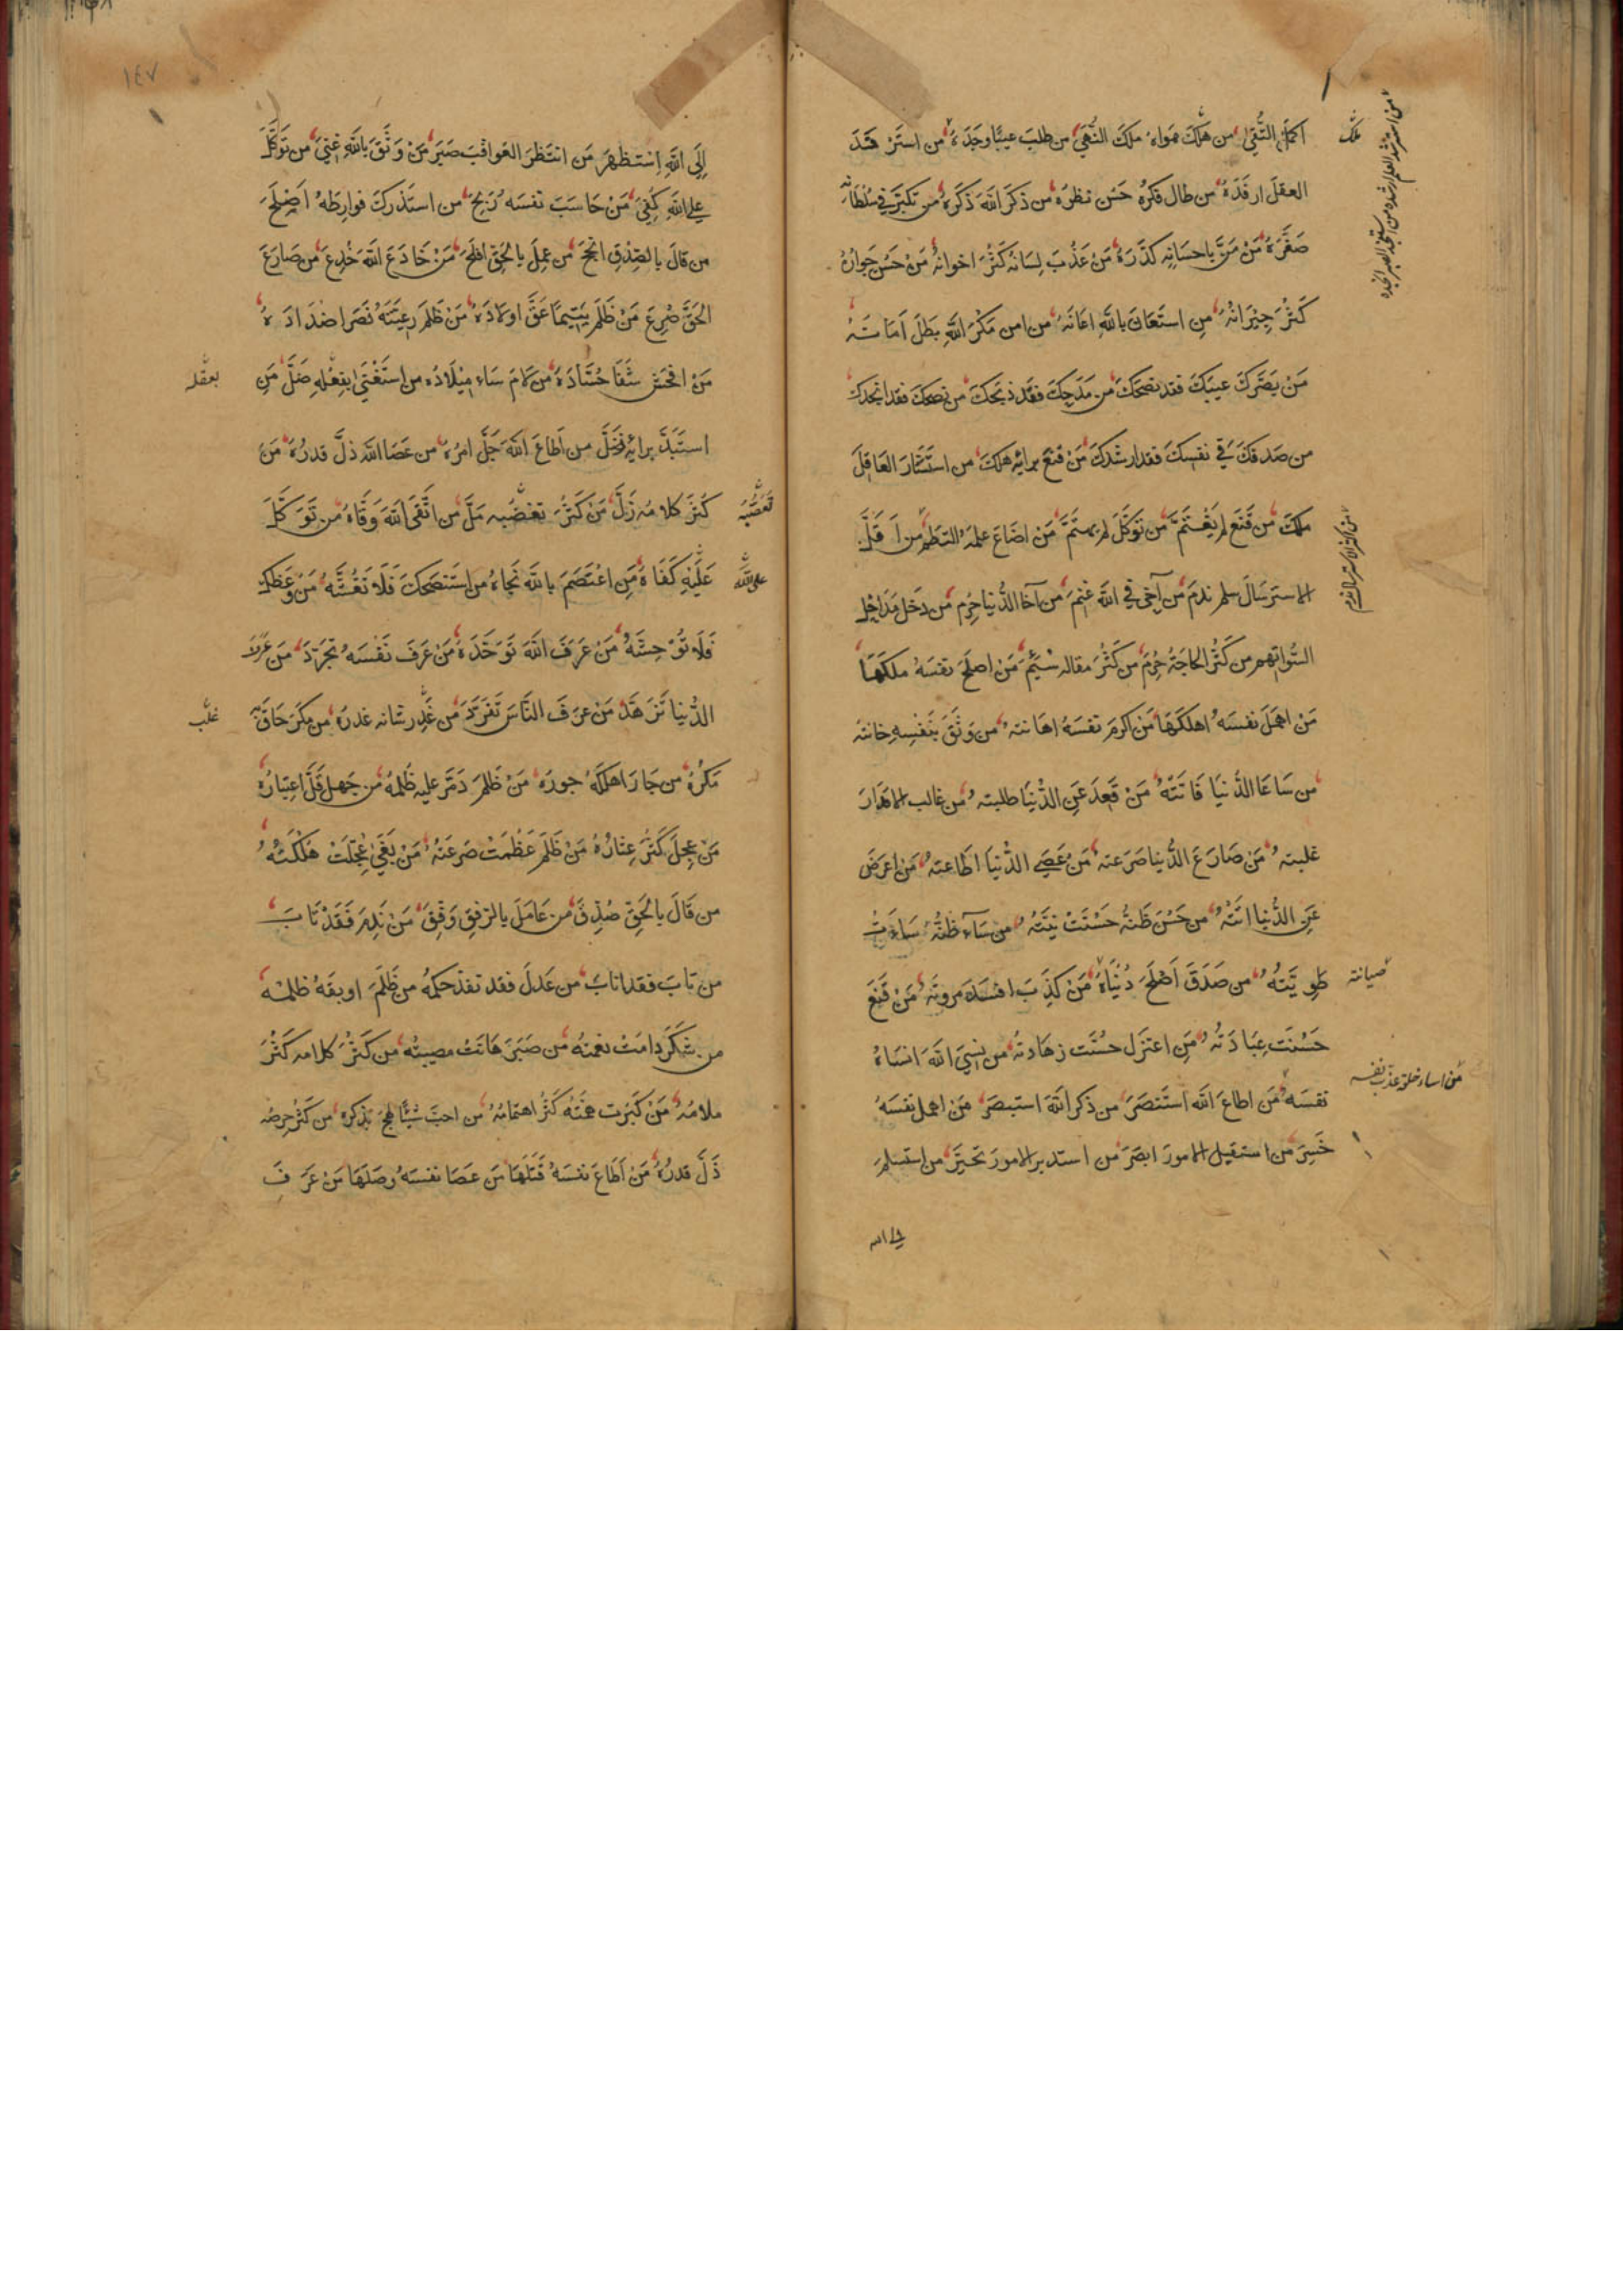 اكمل التُّقى من ملك هواه ملك النُّهى من طلب عيبًا وجده من استرفد
العقل ارفده من طال فكره حسن نظره من ذكر الله ذكره من تكبّر في سلطانه
صغّره من منّ باحسانه كدّره من عذب لسانه كثر اخوانه من حسن جواره
كثر جيرانه من استعان بالله اعانه من امن مكر الله بطل امانه
من بصّرك عيبك فقد نصحك من مدحك فقد ذبحك من نصحك فقد انجدك
من صدقك في نفسك فقد ارشدك من قنع برائه هلك من استشار العاقل
ملك من قنع لم يغتمّ من توكّل لم يهتمّ من اضاع علمه التطم من اقلّ
الاسترسال سلم ندم من آخى في الله غنم من آخا الدّنيا حرم من دخل مداخل
السّوء اتهم من كثر الحاجة حرم من كثر مقاله سئم من اصلح نفسه ملكها
من اهمل نفسه اهلكها من اكرم نفسه اهانته من وثق بنفسه خانته
من ساعا الدّنيا فاتته من قعد عن الدّنيا طلبته من غالب الاقدار
غلبته من صارع الدّنيا صرعته من عصى الدّنيا اطاعته من اعرض
عن الدّنيا اتته من حسن ظنّه حسنت نيّته من ساء ظنّه ساءت
طويّته من صدق اصلح دنياه من كذب افسد مروته من قنع
حسنت عبادته من اعتزل حسنت زهادته من نسي الله انساه
نفسه من اطاع الله استنصر من ذكر الله استبصر من اهمل نفسه
خسر من استقبل الامور ابصر من استدبر الامور تحيّر من استسلم
الى الله
ملك
من استرشد العلم ارشده من استنجد الصبر انجده
من اكثر الاسترسال ندم
صيانته
من اساء خلقه عذب نفسه
١٤٧
الى الله استظهر من انتظر العواقب صبر من وثق بالله غني من توكّل
على الله كفي من حاسب نفسه ربح من استدرك فوارطه اصلح
من قال بالصّدق انجح من عمل بالحقّ افلح من خادع الله خدع من صارع
الحقّ صرع من ظلم يتيمًا عقّ اولاده من ظلم رعيّته نصر اضداده
من افحش شفا حسّاده من لام ساء ميلاده من استغنى بفعله ضلّ من
استبدّ برائه فضلّ من اطاع الله جلّ امره من عصا الله ذلّ قدره من
كثر كلامه زلّ من كثر تغضّبه ملّ من اتّقى الله وقاه من توكّل
عليه كفاه من اعتصم بالله نجاه من استنصحك فلا تغشّه من وعظك
فلا توحشه من عرف الله توحّده من عرف نفسه تجرّد من عرف
الدّنيا تزهّد من عرف النّاس تفرّد من غدر شانه غدره من مكر حاق به
مكره من جار اهلكه جوره من ظلم دمّر عليه ظلمه من جهل قلّ اعتباره
من عجل كثر عثاره من ظلم عظمت صرعته من بغى عجّلت هلكته
من قال بالحقّ صدّق من عامل بالرّفق وفّق من ندم فقد تاب
من تاب فقد اناب من عدل فقد نفذ حكمه من ظلم اوبقه ظلمه
من شكر دامت نعمته من صبر هانت مصيبته من كثر كلامه كثر
ملامه من كبرت همّته كثر اهتمامه من احبّ شيئًا لهج بذكره من كثر حرصه
ذلّ قدره من اطاع نفسه قتلها من عصا نفسه وصلها من عرف
بعقله
تعصّبه
على الله
غلب